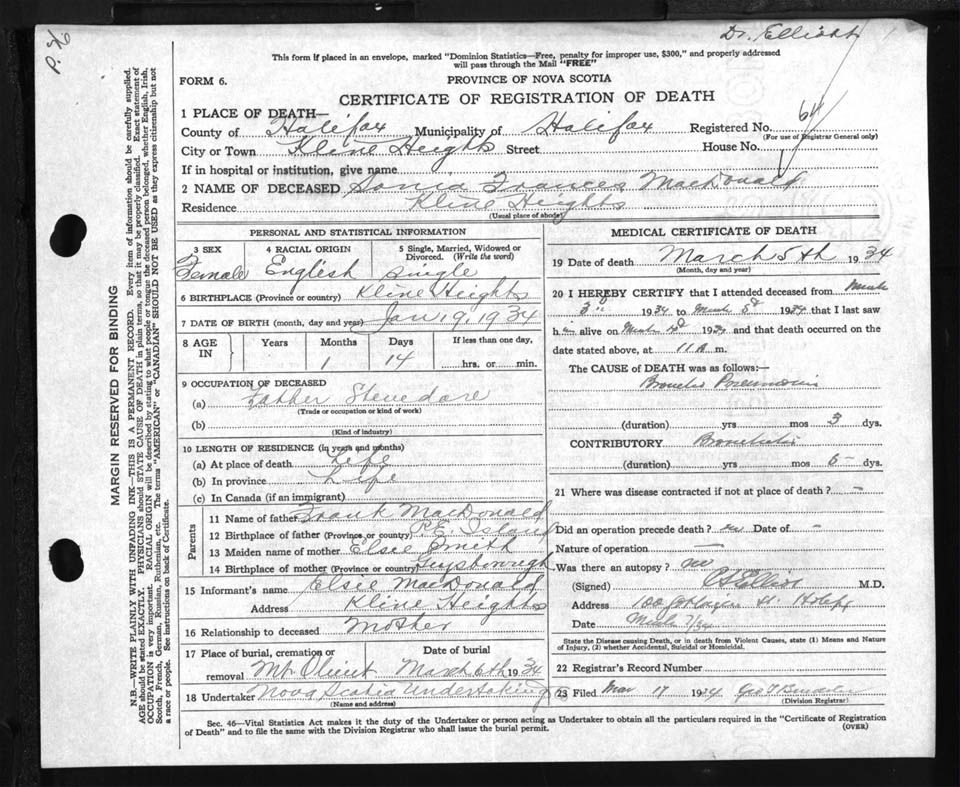 P. 26
Dr. Elliott
This form if placed in an envelope, marked "Dominion Statistics—Free, penalty for improper use, $300," and properly addressed
will pass through the Mail "FREE"
FORM 6.
PROVINCE OF NOVA SCOTIA
CERTIFICATE OF REGISTRATION OF DEATH
1 PLACE OF DEATH—
County of Halifax Municipality of Halifax Registered No. 64
(For use of Registrar General only)
City or Town Kline Heights Street House No.
If in hospital or institution, give name
2 NAME OF DECEASED Sonia Frances MacDonald
Residence Kline Heights
(Usual place of abode)
PERSONAL AND STATISTICAL INFORMATION
3 SEX 4 RACIAL ORIGIN 5 Single, Married, Widowed or
Divorced. (Write the word)
Female English Single
6 BIRTHPLACE (Province or country) Kline Heights
7 DATE OF BIRTH (month, day and year) Jan 19, 1934
8 AGE IN Years Months Days If less than one day,
1 14 hrs. or min.
9 OCCUPATION OF DECEASED
(a) Father Stevedore
(Trade or occupation or kind of work)
(b)
(Kind of industry)
10 LENGTH OF RESIDENCE (in years and months)
(a) At place of death Life
(b) In province Life
(c) In Canada (if an immigrant)
Parents
11 Name of father Frank MacDonald
12 Birthplace of father (Province or country) P.E. Island
13 Maiden name of mother Elsie Smith
14 Birthplace of mother (Province or country) Guysborough
15 Informant's name Elsie MacDonald
Address Kline Heights
16 Relationship to deceased Mother
17 Place of burial, cremation or Date of burial
removal Mt Olivet March 6th 1934
18 Undertaker Nova Scotia Undertaking
(Name and address)
MEDICAL CERTIFICATE OF DEATH
19 Date of death March 5th 1934
(Month, day and year)
20 I HEREBY CERTIFY that I attended deceased from March
3 1934 to March 5 1934 that I last saw
h alive on March 1934 and that death occurred on the
date stated above, at 11 A m.
The CAUSE of DEATH was as follows:—
Broncho Pneumonia
(duration) yrs mos 3 dys.
CONTRIBUTORY Bronchitis
(duration) yrs mos 6 dys.
21 Where was disease contracted if not at place of death? —
Did an operation precede death? no Date of —
Nature of operation —
Was there an autopsy? no
(Signed) Elliott M.D.
Address St. Halifx
Date March 7/34
State the Disease causing Death, or in death from Violent Causes, state (1) Means and Nature
of Injury, (2) whether Accidental, Suicidal or Homicidal.
22 Registrar's Record Number
23 Filed Mar 17 1934 Geo
(Division Registrar)
Sec. 46—Vital Statistics Act makes it the duty of the Undertaker or person acting as Undertaker to obtain all the particulars required in the "Certificate of Registration
of Death" and to file the same with the Division Registrar who shall issue the burial permit.
(OVER)
MARGIN RESERVED FOR BINDING
N.B.—WRITE PLAINLY WITH UNFADING INK—THIS IS A PERMANENT RECORD. Every item of information should be carefully supplied.
AGE should be stated EXACTLY. PHYSICIANS should STATE CAUSE OF DEATH in plain terms, so that it may be properly classified. Exact statement of
OCCUPATION is very important. RACIAL ORIGIN will be described by stating to what people or tongue the deceased person belonged, whether English, Irish,
Scotch, French, German, Russian, Ruthenian, etc. The terms "AMERICAN" or "CANADIAN" SHOULD NOT BE USED as they express citizenship but not
a race or people. See instructions on back of Certificate.